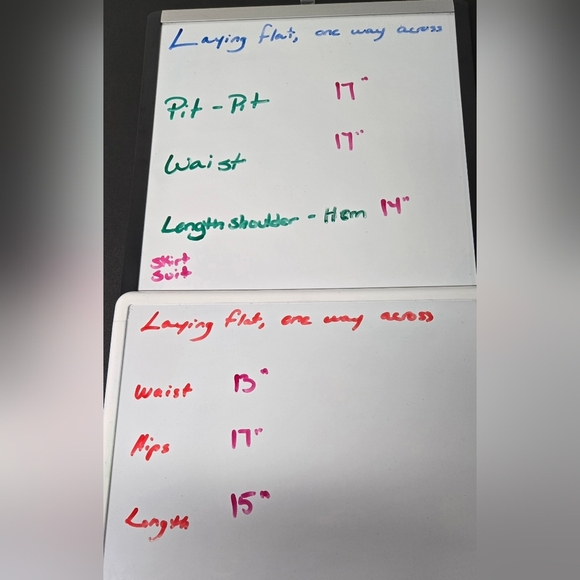 Laying flat, one way across
Pit - Pit 17"
Waist 17"
Length shoulder - Hem 14"
Skirt
Suit
Laying flat, one way across
Waist 13"
Hips 17"
Length 15"